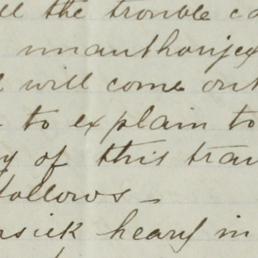 ll the trouble ca
unauthorized
will come out
to explain to
y of this tran
follows -
rsick heavy in